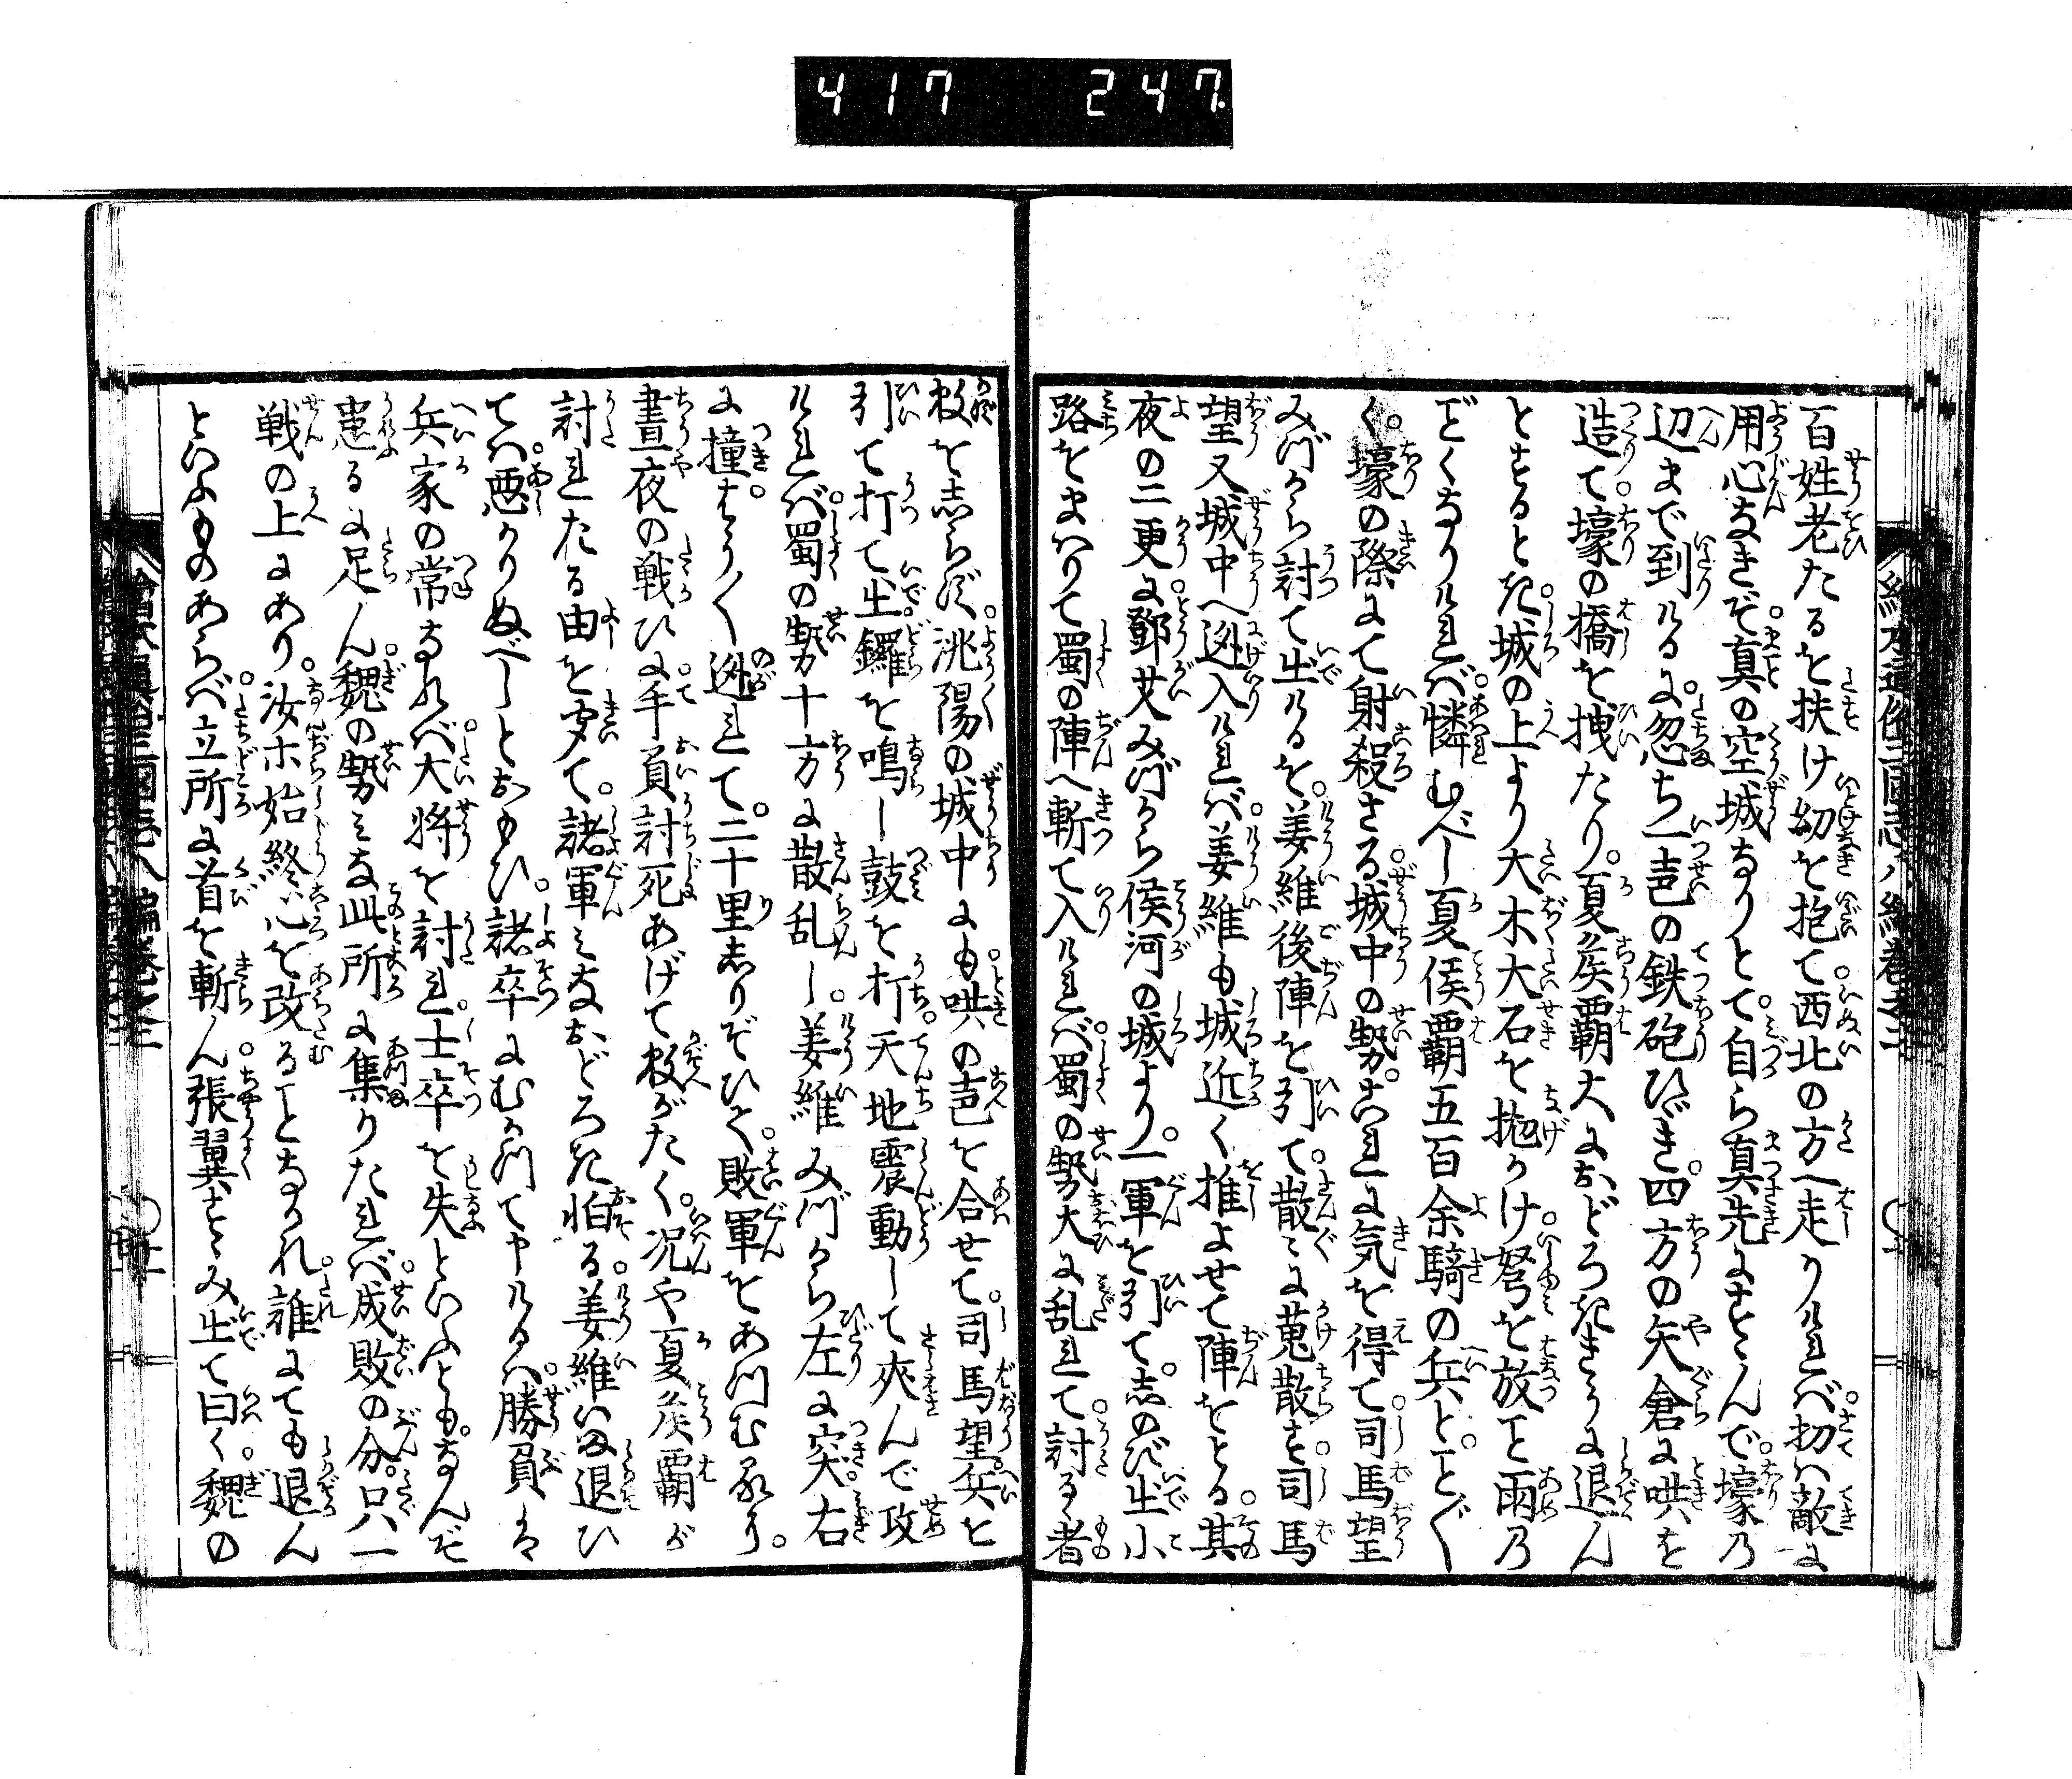 417 247
百姓老たるを扶け幼を抱て西北の方へ走りけれバ扨ハ敵に
用心なきぞ真の空城なりとて自ら真先にすゝんで壕の
辺まで到りけるに忽ち一声の鉄砲ひゞき四方の矢倉に哄を
造て壕の橋を拽たり夏侯覇大におどろききうに退ん
とするとき城の上より大木大石を抛かけ弩を放こと雨の
ごとくなりけれバ憐むべし夏侯覇五百余騎の兵とことごと
く壕の際にて射殺さる城中の勢これに気を得て司馬望
みづから討て出けるを姜維後陣を引て散々に蒐散す司馬
望又城中へ迯入けれバ姜維も城近く推よせて陣をとる其
夜の二更に鄧艾みづから侯河の城より一軍を引てしのび出小
路をまハりて蜀の陣へ斬て入けれバ蜀の勢大に乱れて討るゝ者
数をしらず洮陽の城中にも哄の声を合せて司馬望兵を
引て打て出鑼を鳴し鼓を打天地震動して夾んで攻
けれバ蜀の勢十方に散乱し姜維みづから左に突右
に撞やう〳〵迯れて二十里しりぞひて敗軍をあつむ
昼夜の戦ひに手負討死あげて数がたく況や夏侯覇が
討れたる由を聞て諸軍ミなおどろき怕る姜維いま退ひ
てハ悪かりぬべしとおもひ諸卒にむかつて申けるハ勝負は
兵家の常なれバ大将を討れ士卒を失といふともなんぞ
患るに足ん魏の勢ミな此所に集りたれバ成敗の分只一
戦の上にあり汝等始終心を改ることなかれ誰にても退ん
といふものあらバ立所に首を斬ん張翼すゝみ出て曰く魏の